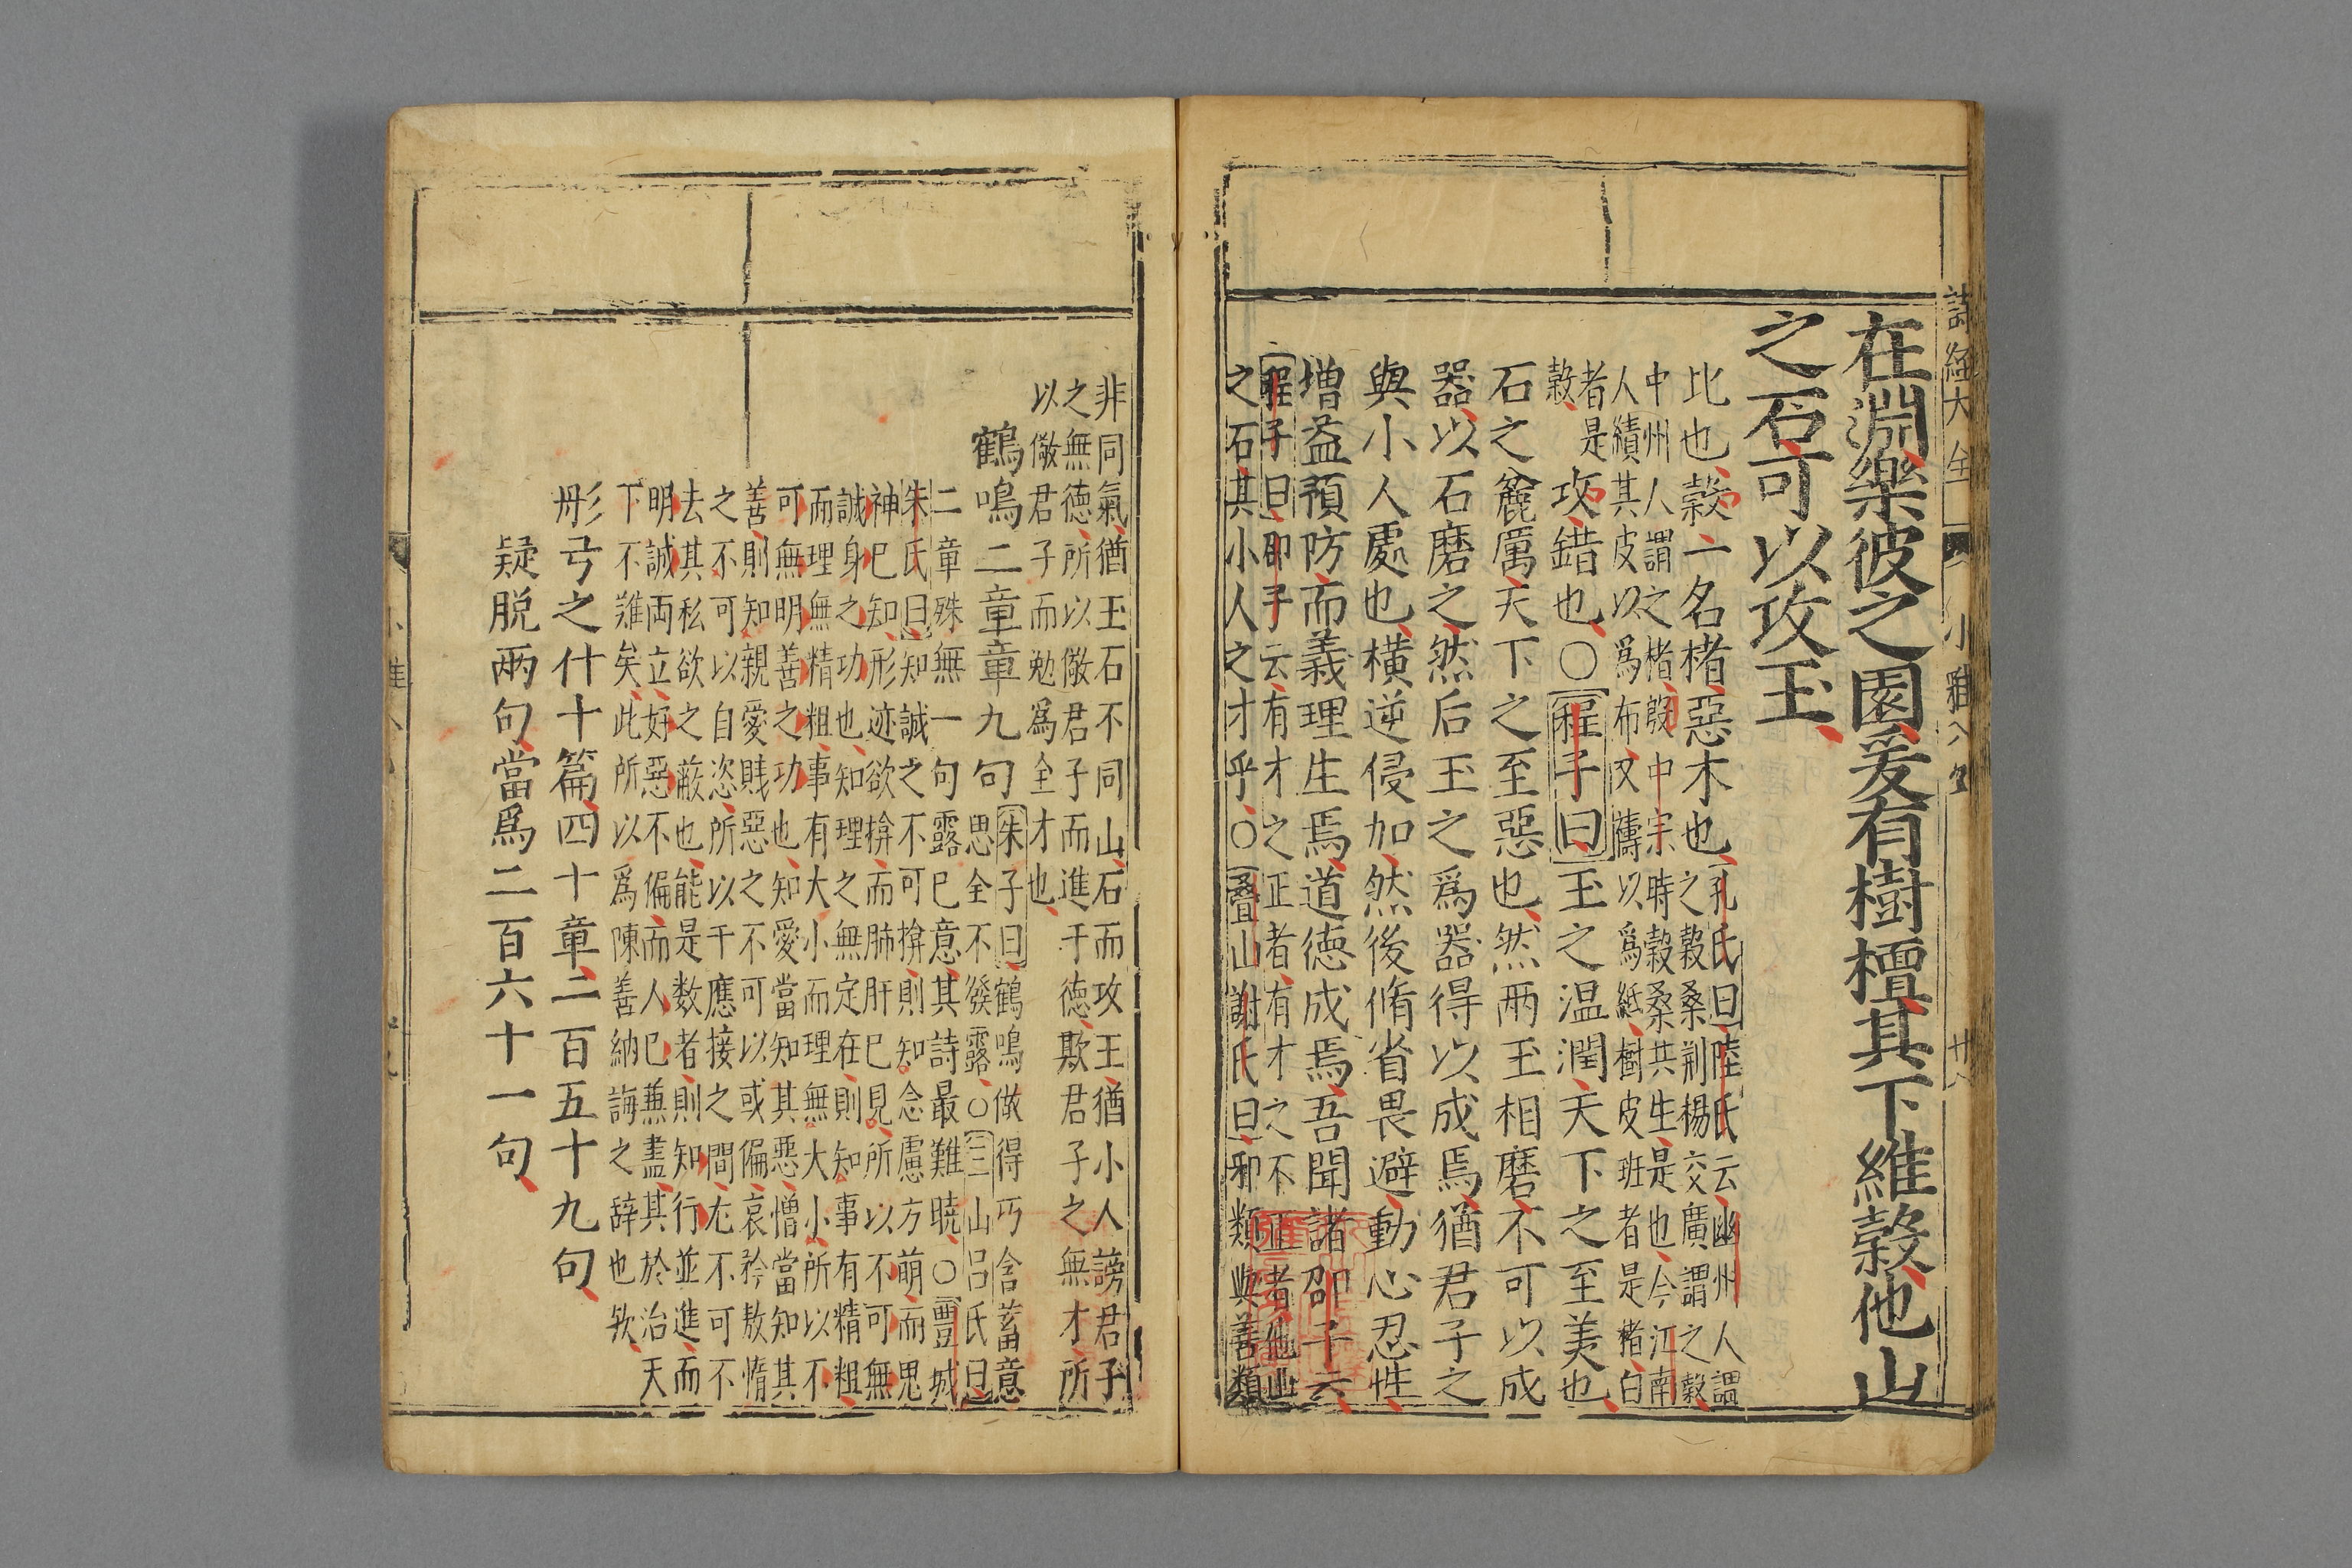 詩經大全
小雅八
在淵樂彼之園爰有樹檀其下維榖他山
之石可以攻玉
比也榖一名楮惡木也
孔氏曰陸氏云幽州人謂
之榖桑荊楊交廣謂之榖
中州人謂之楮殷中宗時榖桑共生是也今江南
人績其皮以爲布又擣以爲紙樹皮班者是楮白
者是
榖
攻錯也○程子曰玉之温潤天下之至美也
石之麄厲天下之至惡也然兩玉相磨不可以成
器以石磨之然后玉之爲器得以成焉猶君子之
與小人處也橫逆侵加然後脩省畏避動心忍性
增益預防而義理生焉道德成焉吾聞諸邵子云
程子曰邵子云有才之正者有才之不正者他山
之石其小人之才乎○疊山謝氏曰邪類與善類
非同氣猶玉石不同山石而攻玉猶小人謗君子
之無德所以儆君子而進于德欺君子之無才所
以儆君子而勉爲全才也
鶴鳴二章章九句
朱子曰鶴鳴做得巧含蓄意
思全不發露○三山呂氏曰
二章殊無一句露已意其詩最難曉○豐城
朱氏曰知誠之不可揜則知念慮方萌而鬼
神已知形迹欲揜而肺肝已見所以不可無
誠身之功也知理之無定在則知事有精粗
而理無精粗事有大小而理無大小所以不
可無明善之功也知愛當知其惡憎當知其
善則知親愛賤惡之不可以或偏哀矜敖惰
之不可以自恣所以于應接之間尤不可不
去其私欲之蔽也能是数者則知行並進而
明誠両立好惡不偏而人已兼盡其於治天
下不難矣此所以爲陳善納誨之辞也欤
彤弓之什十篇四十章二百五十九句
疑脱兩句當爲二百六十一句